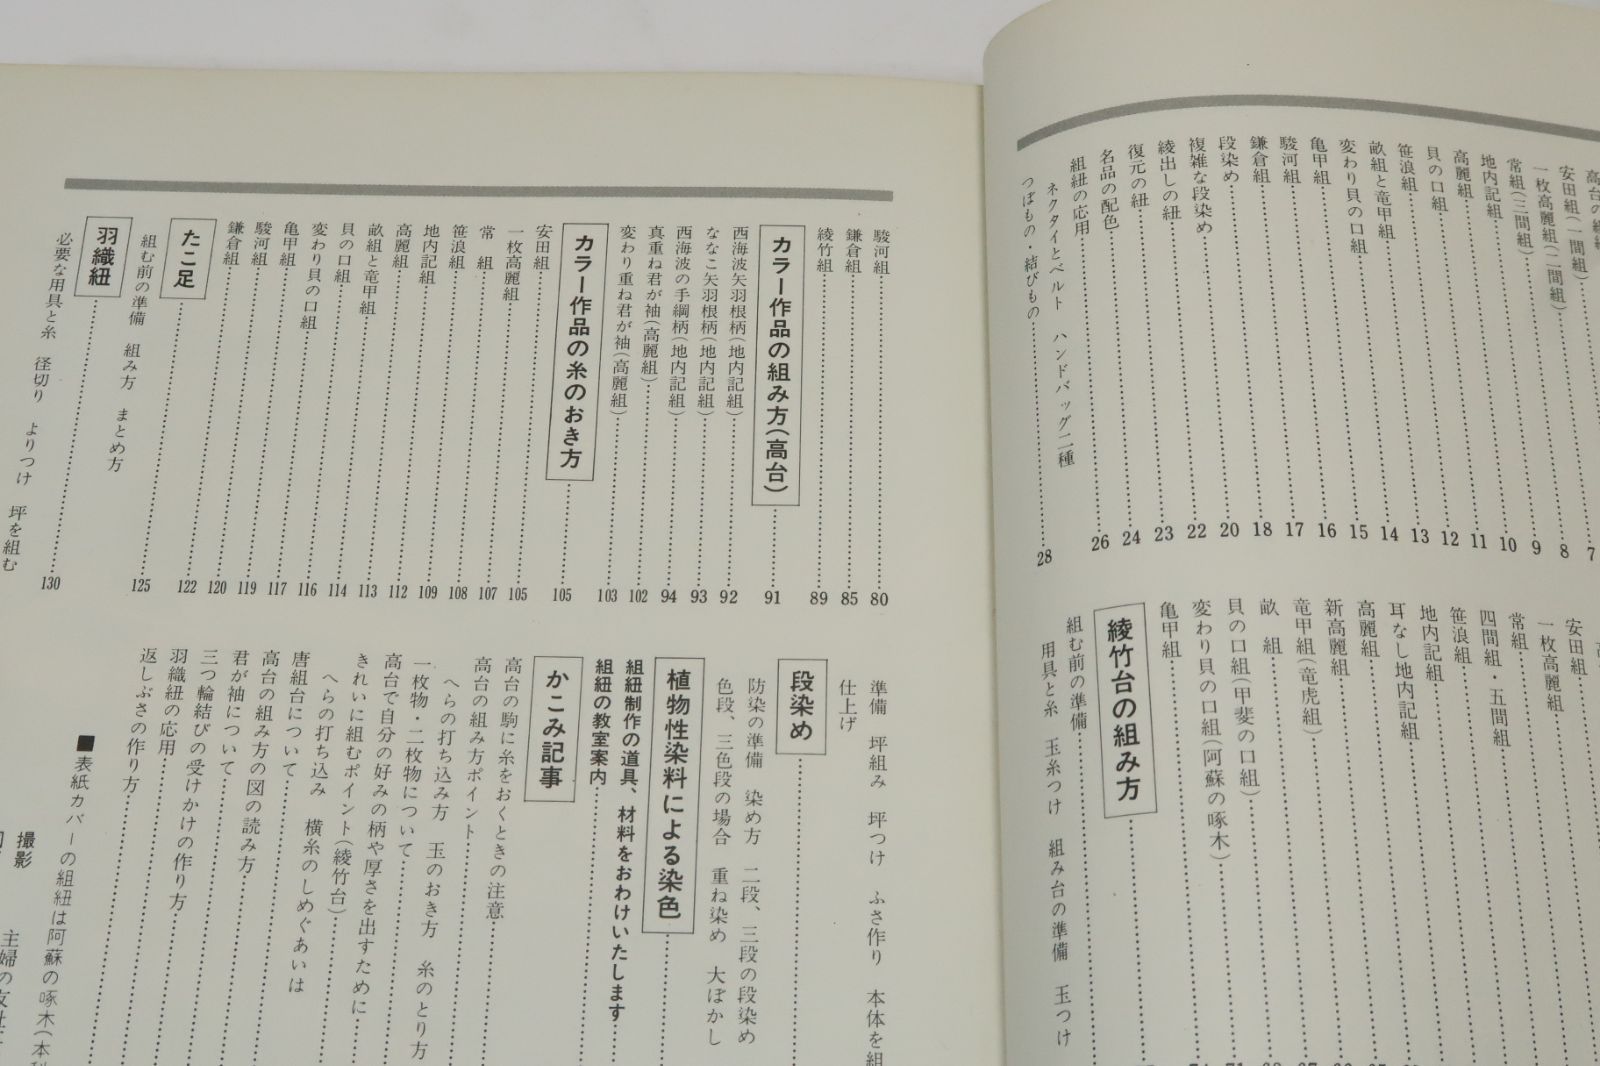 安田組(一間組) 8
一枚高麗組(二間組) 9
常組(三間組) 10
地内記組 11
高麗組 12
貝の口組 13
笹浪組 14
畝組と竜甲組 15
変わり貝の口組
亀甲組 16
駿河組 17
鎌倉組 18
段染め 20
複雑な段染め 22
綾出しの紐 23
復元の紐 24
名品の配色 26
組紐の応用
ネクタイとベルト ハンドバッグ二種
つぼもの・結びもの 28
安田組
一枚高麗組
常組
四間組・五間組
笹浪組
地内記組
耳なし地内記組
高麗組
新高麗組
竜甲組(竜虎組)
畝 組
貝の口組(甲斐の口組)
変わり貝の口組(阿蘇の啄木)
亀甲組
綾竹台の組み方
組む前の準備
用具と糸 玉糸つけ 組み台の準備 玉つけ
駿河組 80
鎌倉組 85
綾竹組 89
カラー作品の組み方(高台) 91
西海波矢羽根柄(地内記組) 92
ななこ矢羽根柄(地内記組) 93
西海波の手綱柄(地内記組) 94
真重ね君が袖(高麗組) 102
変わり重ね君が袖(高麗組) 103
カラー作品の糸のおき方 105
安田組 105
一枚高麗組 107
常 組 108
笹浪組 109
地内記組 112
高麗組 113
畝組と竜甲組 114
貝の口組 116
変わり貝の口組 117
亀甲組 119
駿河組 120
鎌倉組
たこ足 122
組む前の準備 組み方 まとめ方 125
羽織紐 130
必要な用具と糸 径切り よりつけ 坪を組む
準備 坪組み 坪つけ ふさ作り 本体を組
仕上げ
段染め
防染の準備 染め方 二段、三段の段染め
色段、三色段の場合 重ね染め 大ぼかし
植物性染料による染色
組紐制作の道具、材料をおわけいたします
組紐の教室案内
かこみ記事
高台の駒に糸をおくときの注意
高台の組み方ポイント
へらの打ち込み方 玉のおき方 糸のとり方
一枚物・二枚物について
高台で自分の好みの柄や厚さを出すために
きれいに組むポイント(綾竹台)
へらの打ち込み 横糸のしめぐあいは
唐組台について
高台の組み方の図の読み方
君が袖について
三つ輪結びの受けかけの作り方
羽織紐の応用
返しぶさの作り方
■表紙カバーの組紐は阿蘇の啄木(本
撮影
主婦の友社